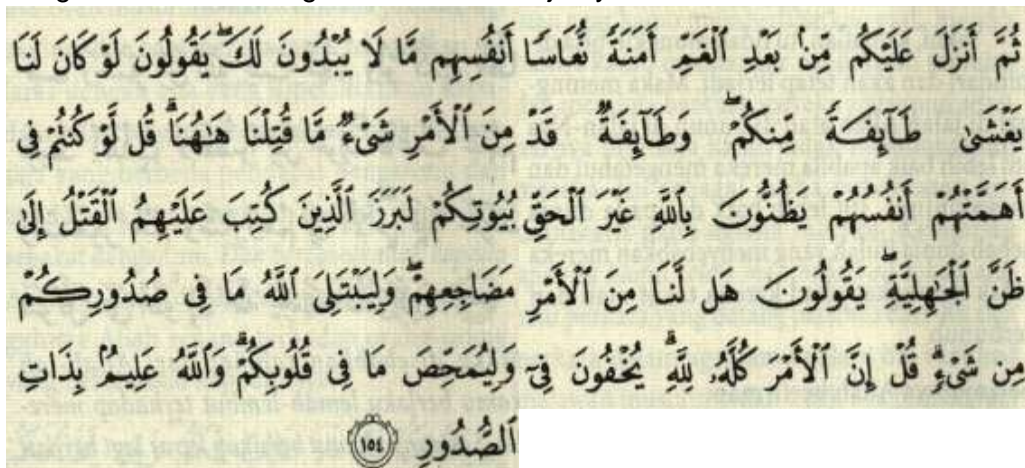 ثُمَّ أَنزَلَ عَلَيْكُم مِّنۢ بَعْدِ ٱلْغَمِّ أَمَنَةً نُّعَاسًا
يَغْشَىٰ طَآئِفَةً مِّنكُمْ ۖ وَطَآئِفَةٌ قَدْ
أَهَمَّتْهُمْ أَنفُسُهُمْ يَظُنُّونَ بِٱللَّهِ غَيْرَ ٱلْحَقِّ
ظَنَّ ٱلْجَٰهِلِيَّةِ ۖ يَقُولُونَ هَل لَّنَا مِنَ ٱلْأَمْرِ
مِن شَىْءٍ ۗ قُلْ إِنَّ ٱلْأَمْرَ كُلَّهُۥ لِلَّهِ ۗ يُخْفُونَ فِىٓ
أَنفُسِهِم مَّا لَا يُبْدُونَ لَكَ ۖ يَقُولُونَ لَوْ كَانَ لَنَا
مِنَ ٱلْأَمْرِ شَىْءٌ مَّا قُتِلْنَا هَٰهُنَا ۗ قُل لَّوْ كُنتُمْ فِى
بُيُوتِكُمْ لَبَرَزَ ٱلَّذِينَ كُتِبَ عَلَيْهِمُ ٱلْقَتْلُ إِلَىٰ
مَضَاجِعِهِمْ ۖ وَلِيَبْتَلِىَ ٱللَّهُ مَا فِى صُدُورِكُمْ
وَلِيُمَحِّصَ مَا فِى قُلُوبِكُمْ ۗ وَٱللَّهُ عَلِيمٌۢ بِذَاتِ
ٱلصُّدُورِ ١٥٤